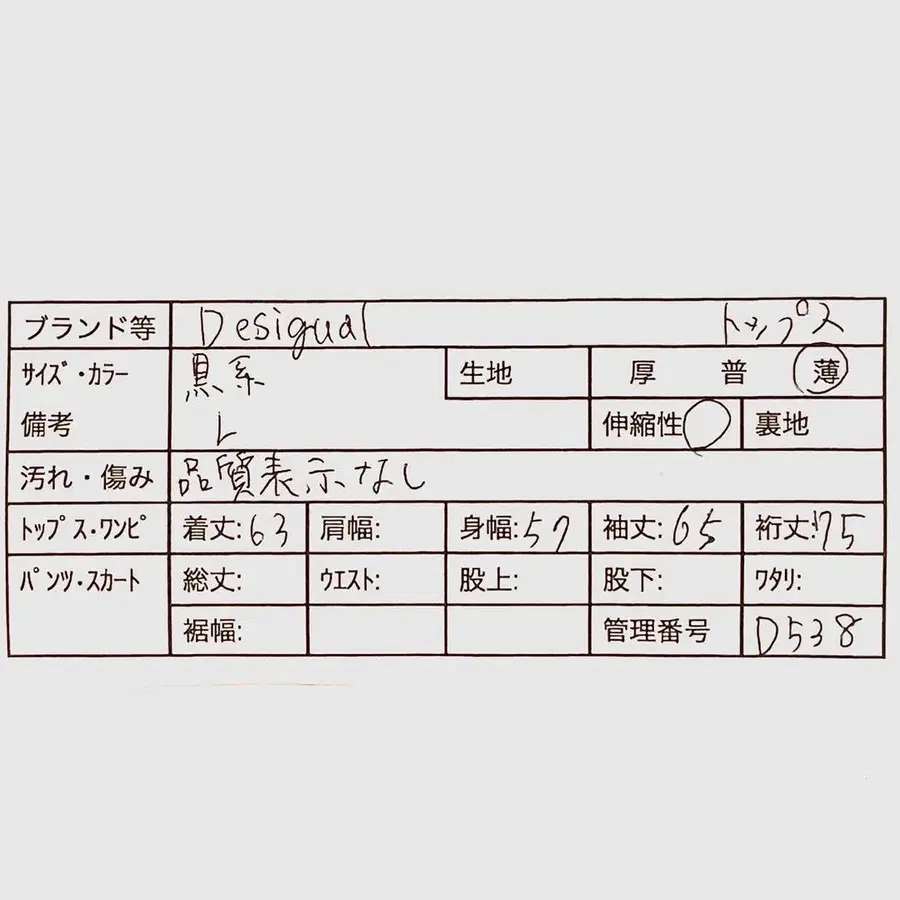 ブランド等 Desigual トップス
サイズ・カラー 黒系 生地 厚 普 薄
備考 L 伸縮性 裏地
汚れ・傷み 品質表示なし
トップス・ワンピ 着丈:63 肩幅: 身幅:57 袖丈:65 裄丈:75
パンツ・スカート 総丈: ウエスト: 股上: 股下: ワタリ:
裾幅: 管理番号 D538